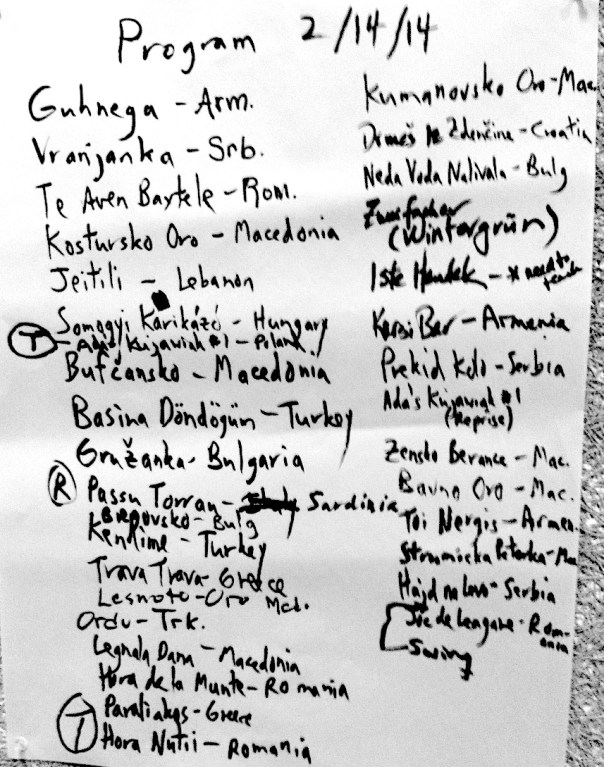 Program 2/14/14
Guhnega - Arm.
Vranjanka - Srb.
Te Aven Baxtele - Rom.
Kostursko Oro - Macedonia
Jeitili - Lebanon
Somogyi Karikázó - Hungary
T - Ada's Kujawiak #1 - Poland
Bufčansko - Macedonia
Basina Döndögün - Turkey
Gružanka - Bulgaria
R Passu Torrau - Sardinia
Bregovsko - Bulg
Kendime - Turkey
Trava Trava - Greece
Lesnoto - Oro Mcd.
Ordu - Trk.
Legnala Dana - Macedonia
Hora de la Munte - Romania
T Paraliakos - Greece
Hora Nutii - Romania
Kumanovsko Oro - Mac.
Drmeš Iz Zdenčine - Croatia
Neda Voda Nalivala - Bulg
(Wintergrün)
Iste Hendek - * need to teach
Karsi Bar - Armenia
Prekid Kolo - Serbia
Ada's Kujawiak #1
(Reprise)
Zensko Beranče - Mac.
Bavno Oro - Mac.
Toi Nergis - Armen.
Strumicka Petorka - Mac
Hajd na levo - Serbia
Joc de Leagane - Romania
Swing